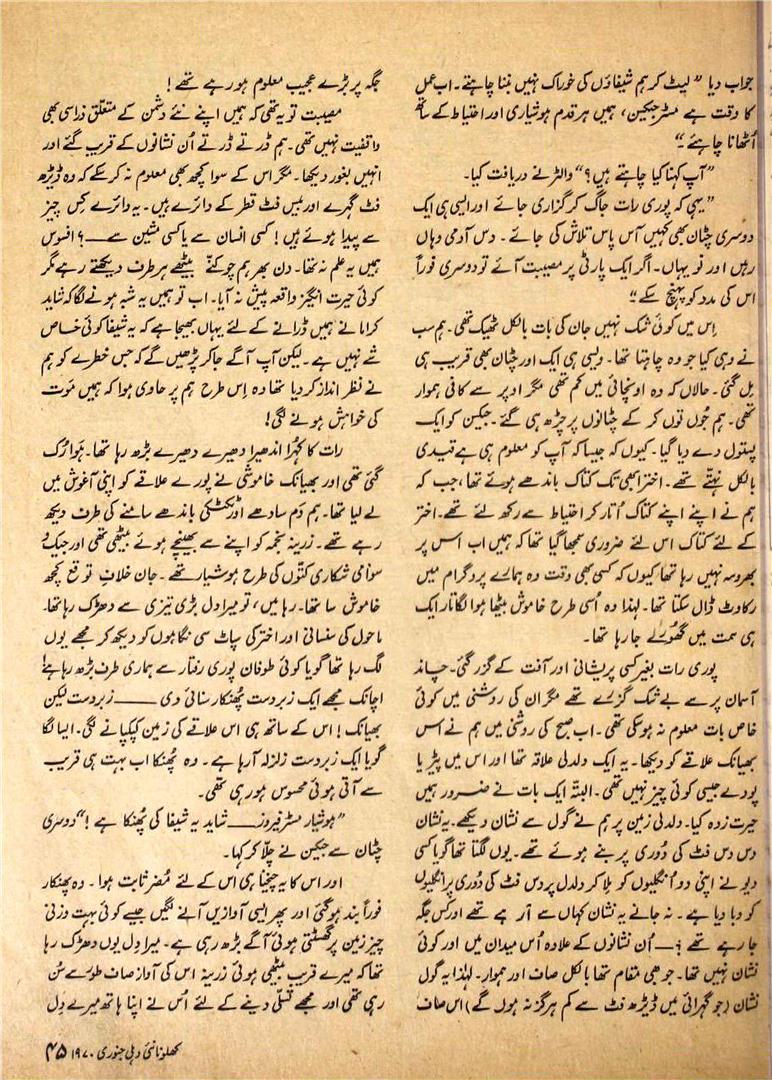 جواب دیا ”لیٹ کر ہم شیفاؤں کی خوراک نہیں بننا چاہتے۔ اب عمل
کا وقت ہے مسٹر جیکسن، ہمیں ہر قدم ہوشیاری اور احتیاط کے ساتھ
اُٹھانا چاہئے۔“
”آپ کہنا کیا چاہتے ہیں؟“ والٹر نے دریافت کیا۔
”یہی کہ پوری رات جاگ کر گزاری جائے اور ایسی ہی ایک
دوسری چٹان بھی کہیں آس پاس تلاش کی جائے۔ دس آدمی وہاں
رہیں اور نو یہاں۔ اگر ایک پارٹی پر مصیبت آئے تو دوسری فوراً
اس کی مدد کو پہنچ سکے۔“
اِس میں کوئی شک نہیں جان کی بات بالکل ٹھیک تھی۔ ہم سب
نے وہی کیا جو وہ چاہتا تھا۔ ویسی ہی ایک اور چٹان بھی قریب ہی
مِل گئی۔ حالاں کہ وہ اونچائی میں کم تھی مگر اوپر سے کافی ہموار
تھی۔ ہم جُوں توں کر کے چٹانوں پر چڑھ ہی گئے۔ جیکسن کو ایک
پستول دے دیا گیا۔ کیوں کہ جیسا کہ آپ کو معلوم ہی ہے قیدی
بالکل نہتّے تھے۔ اختر ابھی تک کتاک باندھے ہوئے تھا، جب کہ
ہم نے اپنے اپنے کتاک اُتار کر احتیاط سے رکھ لئے تھے۔ اختر
کے لئے کتاک اس لئے ضروری سمجھا گیا تھا کہ ہمیں اب اس پر
بھروسہ نہیں رہا تھا کیوں کہ کسی بھی وقت وہ ہمارے پروگرام میں
رکاوٹ ڈال سکتا تھا۔ لہٰذا وہ اُسی طرح خاموش بیٹھا ہوا لگاتار ایک
ہی سمت میں گھُورے جا رہا تھا۔
پوری رات بغیر کسی پریشانی اور آفت کے گزر گئی۔ چاند
آسمان پر سے بے شک گزرے تھے مگر ان کی روشنی میں کوئی
خاص بات معلوم نہ ہو سکی تھی۔ اب صبح کی روشنی میں ہم نے اس
بھیانک علاقے کو دیکھا۔ یہ ایک دلدلی علاقہ تھا اور اس میں پیڑ یا
پودے جیسی کوئی چیز نہیں تھی۔ البتّہ ایک بات نے ضرور ہمیں
حیرت زدہ کیا۔ دلدلی زمین پر ہم نے گول سے نشان دیکھے۔ یہ نشان
دس دس فٹ کی دُوری پر بنے ہوئے تھے۔ یوں لگتا تھا گویا کسی
دیو نے اپنی دو اُنگلیوں کو ملا کر دلدل پر دس فٹ کی دُوری پر انگلیوں
کو دبا دیا ہے۔ نہ جانے یہ نشان کہاں سے آ رہے تھے اور کس جگہ
جا رہے تھے؟ — اُن نشانوں کے علاوہ اُس میدان میں اور کوئی
نشان نہیں تھا۔ جو بھی مقام تھا بالکل صاف اور ہموار۔ لہٰذا یہ گول
نشان (جو گہرائی میں ڈیڑھ فٹ سے کم ہرگز نہ ہوں گے) اس صاف
جگہ پر بڑے عجیب معلوم ہو رہے تھے!
مصیبت تو یہ تھی کہ ہمیں اپنے نئے دشمن کے متعلق ذرا سی بھی
واقفیت نہیں تھی۔ ہم ڈرتے ڈرتے اُن نشانوں کے قریب گئے اور
انہیں بغور دیکھا۔ مگر اس کے سوا کچھ بھی معلوم نہ کر سکے کہ وہ ڈیڑھ
فٹ گہرے اور بیس فٹ قطر کے دائرے ہیں۔ یہ دائرے کِس چیز
سے پیدا ہوئے ہیں! کسی انسان سے یا کسی مشین سے —؟ افسوس
ہمیں یہ علم نہ تھا۔ دن بھر ہم چوکنّے بیٹھے ہر طرف دیکھتے رہے مگر
کوئی حیرت انگیز واقعہ پیش نہ آیا۔ اب تو ہمیں یہ شبہ ہونے لگا کہ شاید
کراما نے ہمیں ڈرانے کے لئے یہاں بھیجا ہے کہ یہ شیفا کوئی خاص
شے نہیں ہے۔ لیکن آپ آگے جا کر پڑھیں گے کہ جس خطرے کو ہم
نے نظر انداز کر دیا تھا وہ اِس طرح ہم پر حاوی ہوا کہ ہمیں موت
کی خواہش ہونے لگی!
رات کا کہُرا اندھیرا دھیرے دھیرے بڑھ رہا تھا۔ ہوا رُک
گئی تھی اور بھیانک خاموشی نے پورے علاقے کو اپنی آغوش میں
لے لیا تھا۔ ہم دَم سادھے اور ٹکٹکی باندھے سامنے کی طرف دیکھ
رہے تھے۔ زرینہ نجمہ کو اپنے سے بھینچے ہوئے بیٹھی تھی اور جیک و
سوامی شکاری کتّوں کی طرح ہوشیار تھے۔ جان خلافِ توقع کچھ
خاموش سا تھا۔ رہا میں، تو میرا دل بڑی تیزی سے دھڑک رہا تھا۔
ماحول کی سنسانی اور اختر کی سپاٹ سی نگاہوں کو دیکھ کر مجھے یوں
لگ رہا تھا گویا کوئی طوفان پوری رفتار سے ہماری طرف بڑھ رہا ہے!
اچانک مجھے ایک زبردست پھُنکار سنائی دی —— زبردست لیکن
بھیانک! اس کے ساتھ ہی اس علاقے کی زمین کپکپانے لگی۔ ایسا لگا
گویا ایک زبردست زلزلہ آ رہا ہے۔ وہ پھُنکا اب بہت ہی قریب
سے آتی ہوئی محسوس ہو رہی تھی۔
”ہوشیار مسٹر فیروز —— شاید یہ شیفا کی پھُنکا ہے!“ دوسری
چٹان سے جیکسن نے چلّا کر کہا۔
اور اس کا یہ چیخنا ہی اس کے لئے مُضر ثابت ہوا۔ وہ پھنکار
فوراً بند ہو گئی اور پھر ایسی آوازیں آنے لگیں جیسے کوئی بہت وزنی
چیز زمین پر گھسٹتی ہوئی آگے بڑھ رہی ہے۔ میرا دِل یوں دھڑک رہا
تھا کہ میرے قریب بیٹھی ہوئی زرینہ اس کی آواز صاف طور سے سُن
رہی تھی اور مجھے تسلّی دینے کے لئے اُس نے اپنا ہاتھ میرے دِل
کھلونا نئی دہلی جنوری ۱۹۷۰ ۴۵